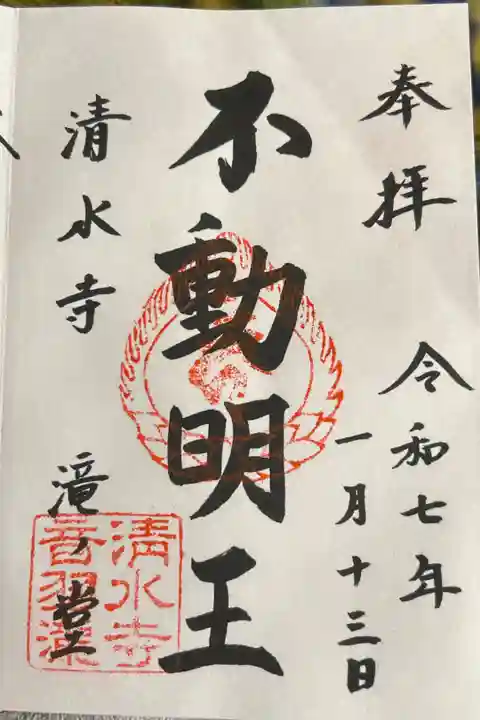 奉拝
令和七年
一月十三日
不動明王
清水寺
滝ノ堂
清水寺
音羽滝